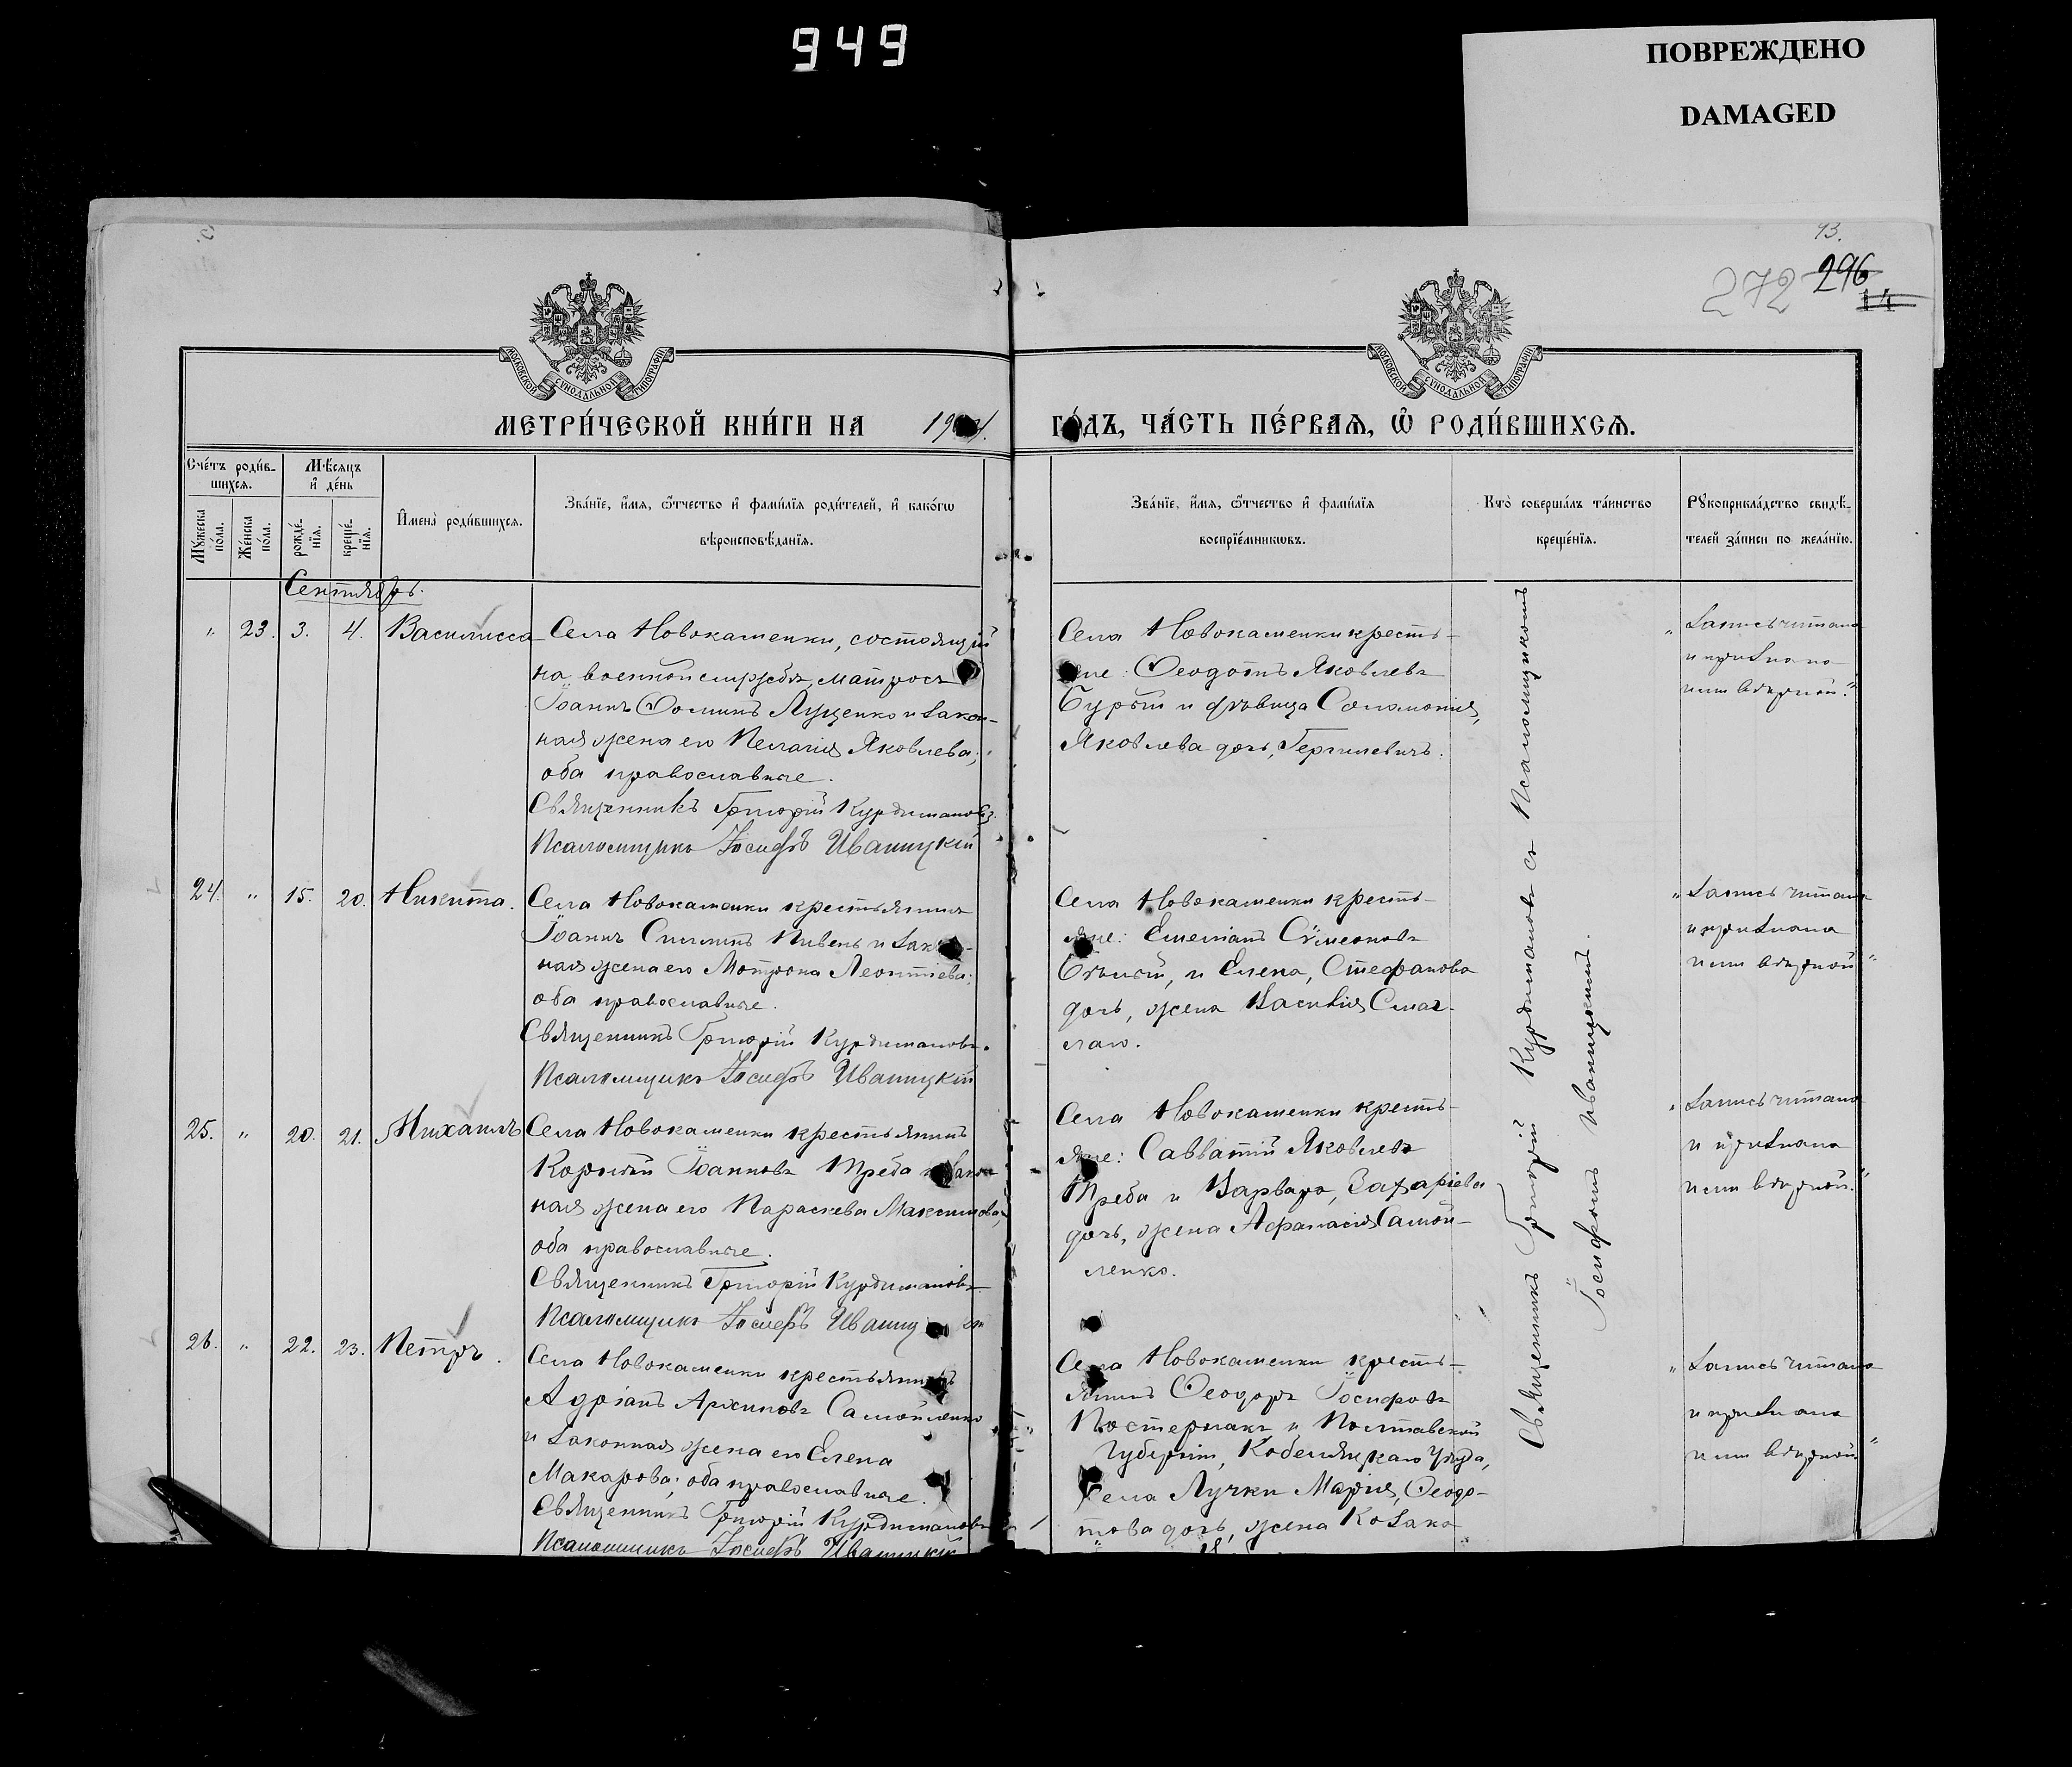 949
ПОВРЕЖДЕНО
DAMAGED
43.
272 296
14
МОСКОВСКОЙ СѴНОДАЛЬНОЙ ТИПОГРАФІИ
МОСКОВСКОЙ СѴНОДАЛЬНОЙ ТИПОГРАФІИ
МЕТРИ́ЧЕСКОЙ КНИ́ГИ НА 19 4. ГО́ДЪ, ЧА́СТЬ ПЕ́РВАѦ, Ѽ РОДИ́ВШИХСѦ.
Сче́тъ роди́в-
шихсѧ.
Мꙋ́жеска по́ла.
Же́нска по́ла.
Мѣ́сѧцъ и҆ де́нь
рожде́-нїѧ.
креще́-нїѧ.
И҆мена̀ роди́вшихсѧ.
Зва́нїе, и҆́мѧ, ѻ҆́тчество и҆ фами́лїѧ роди́телей, и҆ како́гѡ
вѣроисповѣ́данїѧ.
Зва́нїе, и҆́мѧ, ѻ҆́тчество и҆ фами́лїѧ
воспрїе́мникѡвъ.
Кто̀ соверша́лъ та́инство
креще́нїѧ.
Рꙋкоприкла́дство свидѣ́-
телей за́писи по жела́нїю.
Сентябрь.
" 23. 3. 4. Василисса
Села Новокаменки, состоящій
на военной службѣ, матросъ
Іоаннъ Ѳоминъ Луценко и закон-
ная жена его Пелагія Яковлева;
оба православные.
Священникъ Григорій Курдимановъ.
Псаломщикъ Іосифъ Иваницкій
Села Новокаменки кресть-
яне: Ѳеодотъ Яковлевъ
Бурый и дѣвица Соломонія,
Яковлева дочь,
"Запись читана
и признана
ими вѣрной."
24. " 15. 20. Никита.
Села Новокаменки крестьянинъ
Іоаннъ Пивень и закон-
ная жена его Мотрона Леонтіева;
оба православные.
Священникъ Григорій Курдимановъ.
Псаломщикъ Іосифъ Иваницкій
Села Новокаменки кресть-
яне: Емеліанъ Сѵмеоновъ
Бѣлый, и Елена, Стефанова
дочь, жена Василія Смаг-
лаго.
"Запись читана
и признана
ими вѣрной"
25. " 20. 21. Михаилъ
Села Новокаменки крестьянинъ
Корнилій Іоанновъ Треба и закон
ная жена его Параскева Максимова;
оба православные.
Священникъ Григорій Курдимановъ
Псаломщикъ Іосифъ Иваниц ій
Села Новокаменки кресть-
яне: Савватій Яковлевъ
Треба и Варвара, Захаріева
дочь, жена Аѳанасія Самой-
ленко.
"Запись читана
и признана
ими вѣрной."
26. " 22. 23. Петръ.
Села Новокаменки крестьянинъ
Адріанъ Архиповъ Самойленко
и законная жена его Елена
Макарова; оба православные.
Священникъ Григорій Курдимановъ
Псаломщикъ Іосифъ Иваницкій
Села Новокаменки кресть-
янинъ Ѳеодоръ Іосифовъ
Постернакъ и Полтавской
Губерніи, Кобеляцкаго уѣзда,
Села Лучки Марія, Ѳеодо-
това дочь, жена Козака
"Запись читана
и признана
ими вѣрной"
Священникъ Григорій Курдимановъ съ Псаломщикомъ
Іосифомъ Иваницкимъ.